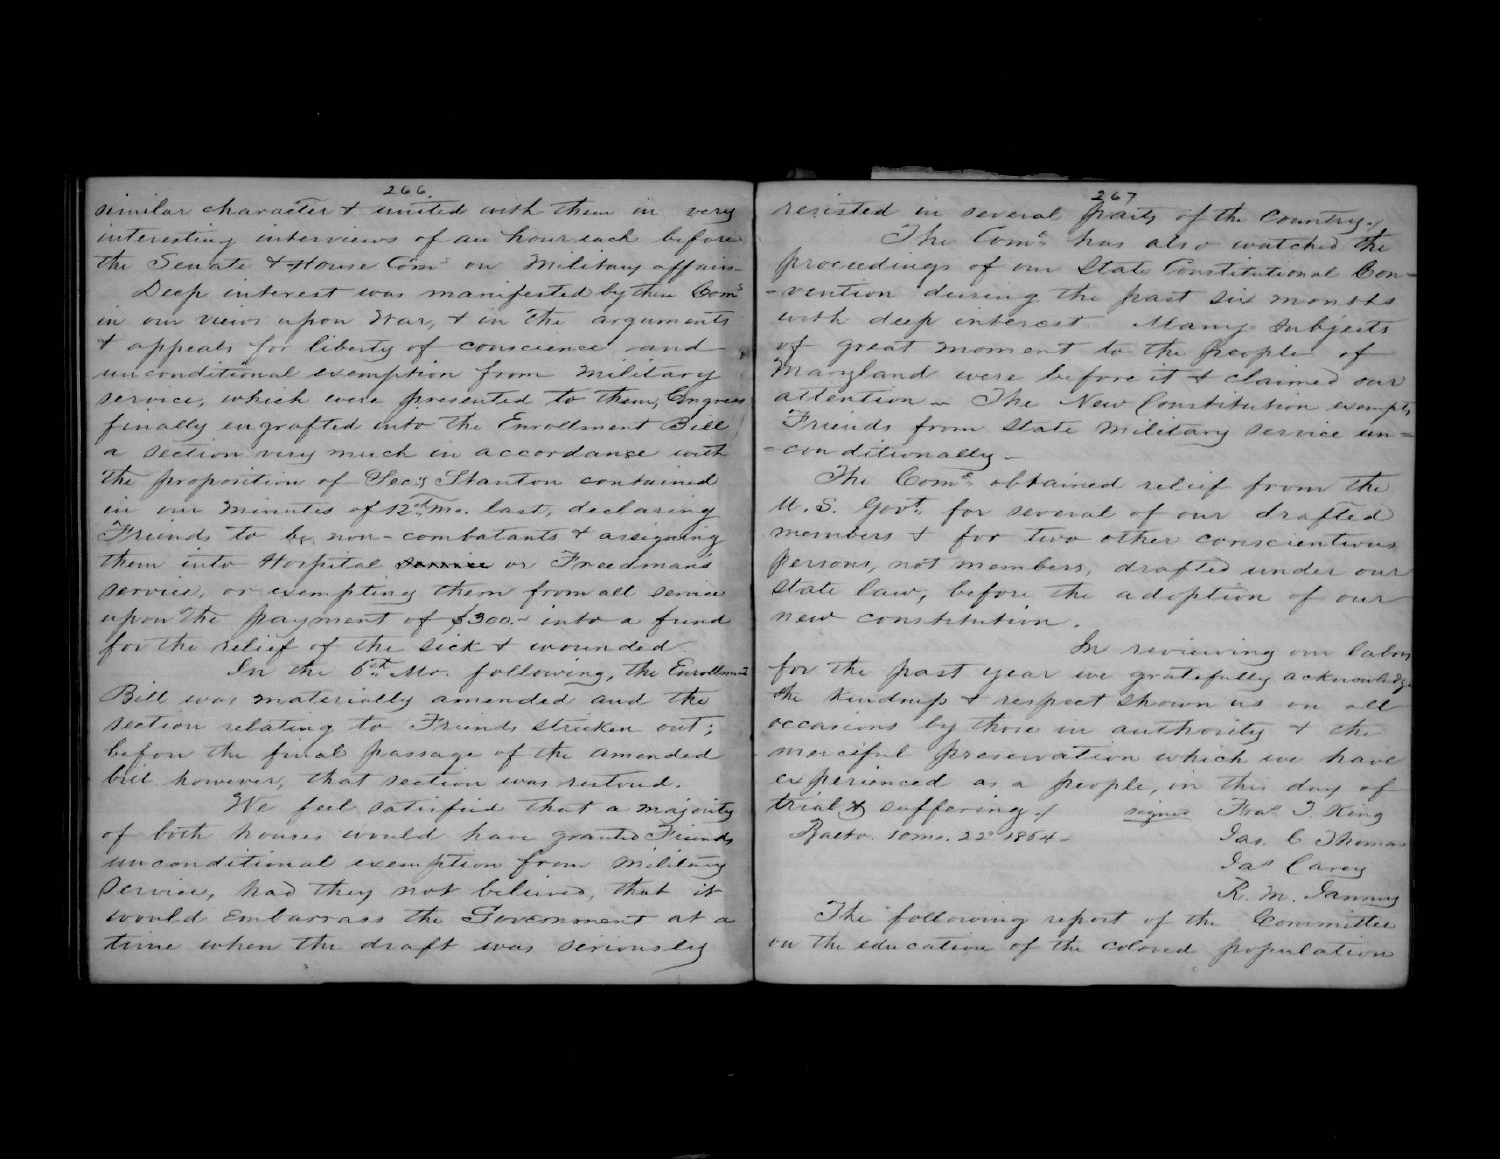 266.
similar character & united with them in very
interesting interviews of an hour each before
the Senate & House Comˢ on Military affairs—
Deep interest was manifested by these Comˢ
in our views upon War, & in the arguments
& appeals for liberty of conscience and
unconditional exemption from Military
service, which were presented to them; Congress
finally engrafted into the Enrollment Bill
a section very much in accordance with
the proposition of Sec'y Stanton contained
in our Minutes of 12th Mo. last, declaring
Friends to be non-combatants & assigning
them into Hospital service or Freedman's
service, or exempting them from all service
upon the payment of $300.— into a fund
for the relief of the sick & wounded.
In the 6th Mo. following, the Enrollment
Bill was materially amended and the
section relating to Friends stricken out;
before the final passage of the amended
bill however, that section was restored.
We feel satisfied that a majority
of both houses would have granted Friends
unconditional exemption from Military
service, had they not believed, that it
would embarrass the Government at a
time when the draft was seriously
267
resisted in several parts of the Country.
The Comᵉ has also watched the
proceedings of our State Constitutional Con-
-vention during the past six months
with deep interest. Many subjects
of great moment to the people of
Maryland were before it & claimed our
attention — The New Constitution exempts
Friends from State Military service un-
-conditionally —
The Comᵉ obtained relief from the
U.S. Govt. for several of our drafted
members & for two other conscientious
persons, not members, drafted under our
State law, before the adoption of our
new constitution.
In reviewing our labors
for the past year we gratefully acknowledge
the kindness & respect shown us on all
occasions by those in authority & the
merciful preservation which we have
experienced as a people, in this day of
trial & suffering. signed Fras. T. King
Balto. 10 mo. 22d 1864— Jas. C Thomas
Jas Carey
R. M. Janney
The following report of the Committee
on the education of the colored population